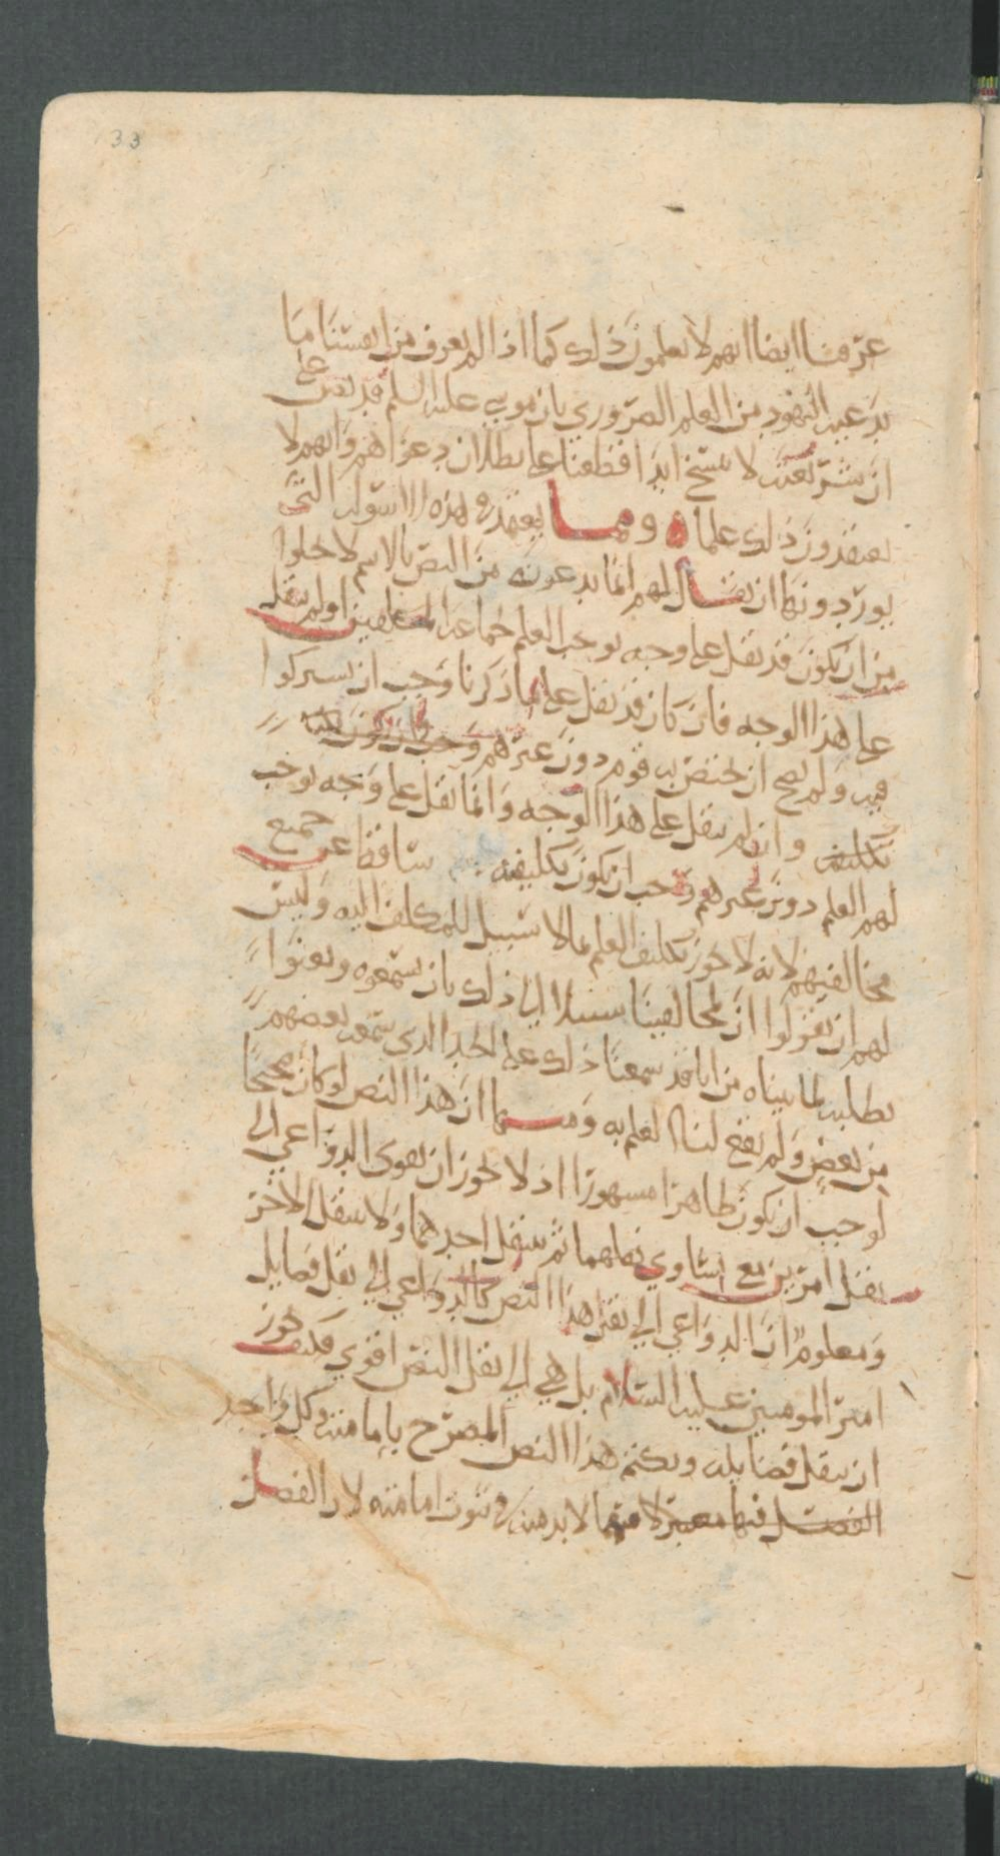 33
عرفنا ايضا انهم لا يعلمون ذلك كما اذا لم نعرف من انفسنا ما
يدعيه اليهود من العلم الضروري بان موسى عليه السلم قد نص على
ان شريعته لا تنسخ ابدا قطعنا على بطلان دعواهم وانهم لا
يعتقدون ذلك علما ه ومما يعتمد في هذه الاسولة التي
يوردونها ان يقال لهم انما يدعونه من النص بالاسم لا يخلوا
من ان يكون قد نقل على وجه يوجب العلم لجماعة المكلفين او لم ينقل
على هذا الوجه فان كان قد نقل على ما ذكرنا وجب ان يشتركوا
فيه ولم يصح ان يختص به قوم دون غيرهم وجب ان يكون
تكليفه وان لم ينقل على هذا الوجه وانما نقل على وجه يوجب
لهم العلم دون غيرهم وجب ان يكون تكليفه ساقطا عن جميع
مخالفيهم لانه لا يجوز تكليف العلم بما لا سبيل للمكلف اليه وليس
لهم ان يقولوا ان لمخالفينا سبيلا الى ذلك بان يسمعوه ويعنوا
بطلبه لما بيناه من انا قد سمعنا ذلك على الحد الذي سمعه بعضهم
من بعض ولم يقع لنا العلم به ومنها ان هذا النص لو كان صحيحا
لوجب ان يكون ظاهرا مشهورا اذ لا يجوز ان تقوى الدواعي الى
نقل امرين مع تساوي نقلهما ثم ينقل احدهما ولا ينقل الاخر
ومعلوم ان الدواعي الى نقل هذا النص كالدواعي الى نقل فضايل
امير المومنين عليه السلام بل هي الى نقل النص اقوى فكيف يجوز
ان ينقل فضايله ويكتم هذا النص المصرح بامامته وكل واحد
الفضل فيها معتبر لا بد منه في ثبوت امامته لان الفضل